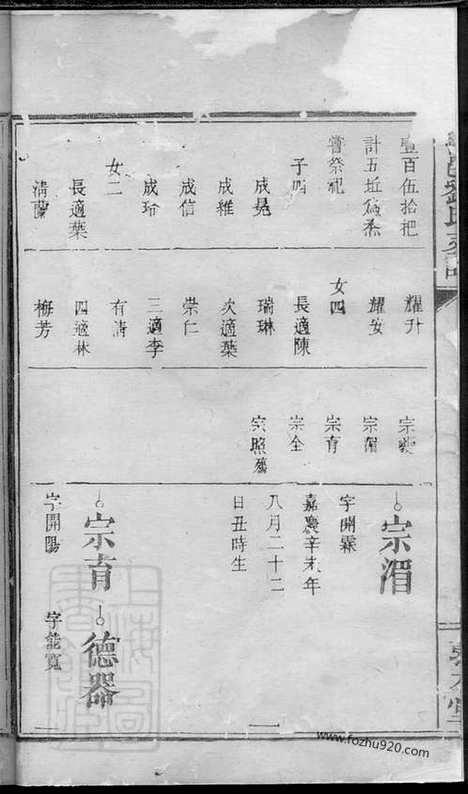 壹百伍拾把
計五坵為烝
嘗祭祀
子四
成晃
成維
成信
成珆
女二
長適葉
清蘭
耀升
耀安
女四
長適陳
瑞琳
次適葉
崇仁
三適李
有清
四適林
梅芳
宗
宗湄
宗育
宗全
宗照殤
宗湄
字開霖
嘉慶辛未年
八月二十二
日丑時生
宗育
字開陽
德器
字能寬
一
www.fozhu920.com